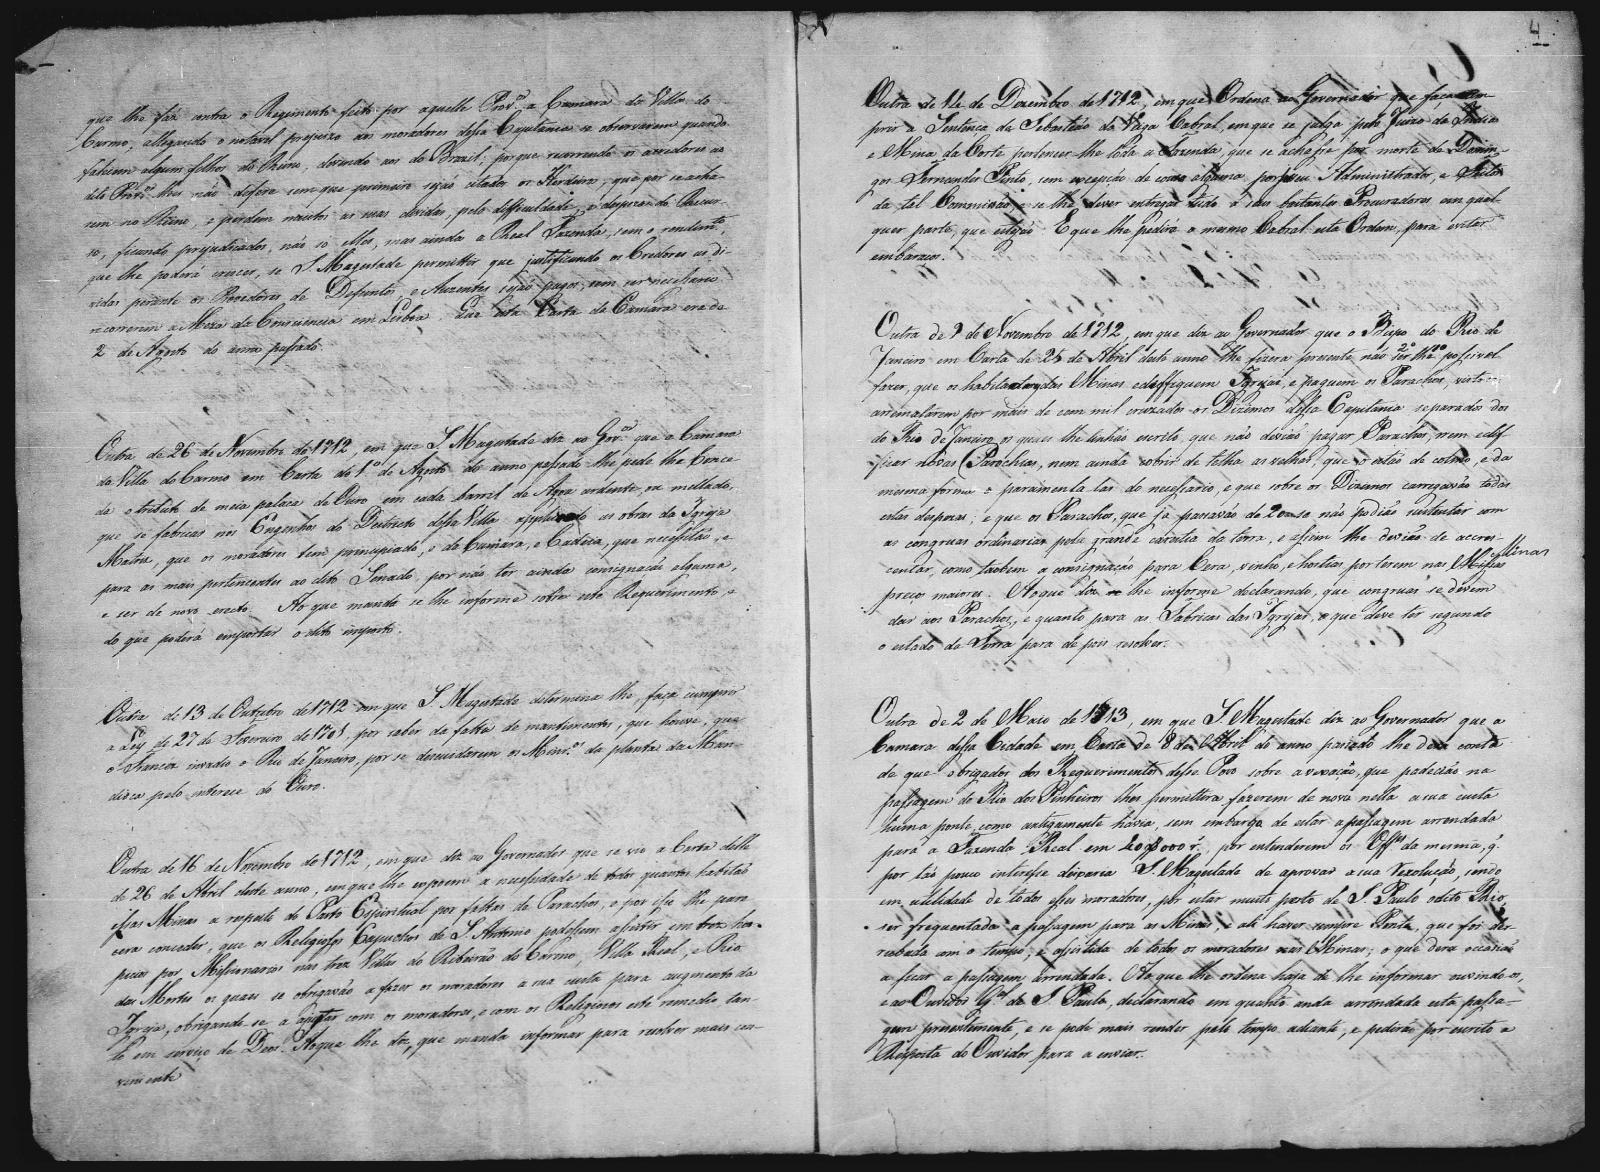 que lhe faz contra o Regimento feito por aquelle Prov.or a Camara da Villa do
Carmo, allegando o notavel prejuizo aos moradores dessa Capitania se observarem quando
falecem alguns filhos do Reino, devendo aos do Brazil; porque recorrendo os acredores ao
dito Prov.or lhes não defere sem que primeiro sejão citados os Herdeiros, que por se acha-
rem no Reino, e perdem muitos as suas dividas, pela difficuldade, e despeza do Recur-
so, ficando prejudicados, não so elles, mas ainda a Real Fazenda, sem o rendim.to
que lhe poderá crescer, se S. Magestade permittir que justificando os Credores as di-
vidas perante os Provedores de Defuntos, e Auzentes sejão pagos, sem ser necessario
recorrerem a Meza da Consciencia em Lisboa. Que esta Carta da Camara era de
2 de Agosto do anno passado.
Outra de 26 de Novembro de 1712, em que S. Magestade diz ao Gov.or que a Camara
da Villa do Carmo em Carta de 1.º de Agosto do anno passado lhe pede lhe Conce
da o tributo de meia pataca de Ouro em cada barril de Agoa ardente, ou mellado,
que se fabricas nos Engenhos do Districto dessa Villa applicado as obras da Igreja
Matriz, que os moradores tem principiado, e da Camara, e Cadeia, que necessitão, e
para os mais pertencentes ao dito Senado, por não ter ainda consignação alguma,
e ser de novo erecto. Ao que manda se lhe informe sobre este Requerimento, e
do que poderá emportar o dito imposto.
Outra de 13 de Outubro de 1712 em que S. Magestade determina lhe, faça cumprir
a Ley de 27 de Fevereiro de 1701, por saber da falta de mantimentos, que houve, que
o Francez invadio o Rio de Janeiro, por se descuidarem os Min.os da planta da Man-
dioca pelo interece do Ouro.
Outra de 16 de Novembro de 1712, em que diz ao Governador que se vio a Carta delle
de 26 de Abril deste anno, em que lhe expoem a necessidade de todos quantos habitão
essas Minas a respeito do Pasto Espiritual por faltas de Parochos, e por isso lhe pare
cera conceder, que os Religiosos Capuchos de S. Antonio podessem assistir em trez hos-
picios por Missionarios nas trez Villas do Ribeirão do Carmo, Villa Real, e Rio
das Mortes os quaes se obrigavão a fazer os moradores a sua custa para augmento da
Igreja, obrigando-se a ajustar com os moradores, e com os Religiosos este remedio tan-
to em serviço de Deos. Ao que lhe diz, que manda informar para resolver mais con-
veniente
4
Outra de 14 de Dezembro de 1712, em que Ordena ao Governador que faça cum
prir a Sentença da Sebastião da Veiga Cabral, em que se julga pelo Juizo da India
e Mina da Corte pertencer-lhe toda a Fazenda, que se achasse por morte de Domin-
gos Fernandes Pinto, sem excepção de couza alguma, por seu Administrador, e Feitor
da tal Commissão, e se lhe dever entregar tudo a seus bastantes Procuradores em qual-
quer parte, que estejão E que lhe pedira o mesmo Cabral esta Ordem, para evitar
embaraços.
Outra de 9 de Novembro de 1712, em que diz ao Governador que o Bispo do Rio de
Janeiro em Carta de 25 de Abril deste anno lhe fizera presente não ser lhe possivel
fazer, que os habitadores das Minas edeffiquem Igrejas, e paguem os Parochos, visto
arrematarem por mais de cem mil cruzados os Dizimos dessa Capitania separados dos
do Rio de Janeiro os quaes lhe tinhão escrito, que não devião pagar Parochos, nem edif
ficar novas Parochias, nem ainda cobrir de telha as velhas, que o estão de colmo, e da
mesma forma o paramenta las do necessario, e que sobre os Dizimos carregavão todas
estas despezas: e que os Parochos, que ja passavão de 20 não podião sustentar com
as congruas ordinarias pela grande carestia da terra, e assim lhe devião de accres-
centar, como tambem a consignação para Cera, vinho, e hostias por terem nas Minas
preço maiores. Ao que diz lhe informe declarando, que congruas se devem
dar aos Parochos, e quanto para as Fabricas das Igrejas, o que deve ter segundo
o estado da Terra para de pois resolver.
Outra de 2 de Maio de 1713, em que S. Magestade diz ao Governador que a
Camara dessa Cidade em Carta de 8 de Abril do anno passado lhe dera conta
de que obrigados dos Requerimentos desse Povo sobre a vexação, que padecião na
passagem do Rio dos Pinheiros lhes permittira fazerem de novo nella a sua custa
huma ponte, como antigamente havia, sem embargo de estar a passagem arrendada
para a Fazenda Real em 40$000 r.s, por entenderem os Off.es da mesma, q.
por tão pouco interesse deixaria S. Magestade de aprovar a sua rezolução, sendo
em utilidade de todos esses moradores, por estar muito perto de S. Paulo o dito Rio,
ser frequentada a passagem para as Minas, e ali haver sempre Ponte, que foi der-
rubada com o tempo, e assistida de todos os moradores nas Minas; o que dera occasião
a ficar a passagem arrendada. Ao que lhe ordena haja de lhe informar ouvindo-os,
e ao Ouvidor G.al de S. Paulo, declarando em quanto anda arrendada esta passa-
gem prezentemente, e se pode mais render pelo tempo adiante, e pedirão por escrito a
Resposta do Ouvidor para a enviar.